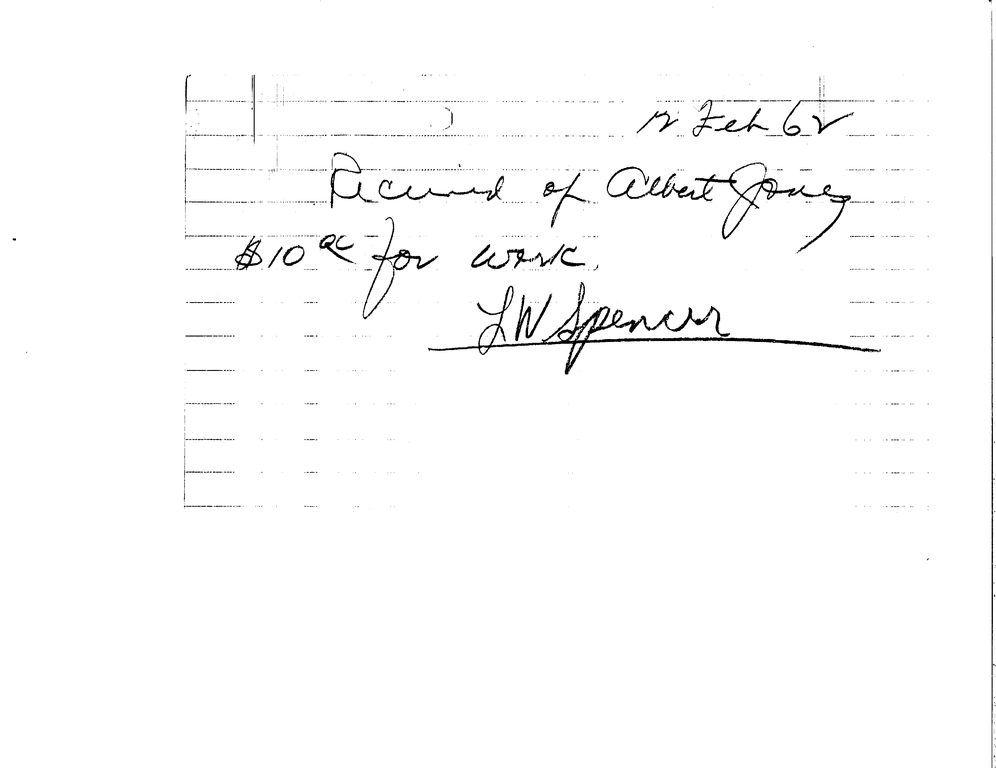 12 Feb 62
Received of Albert Jones
$10 00 for work.
LW Spencer